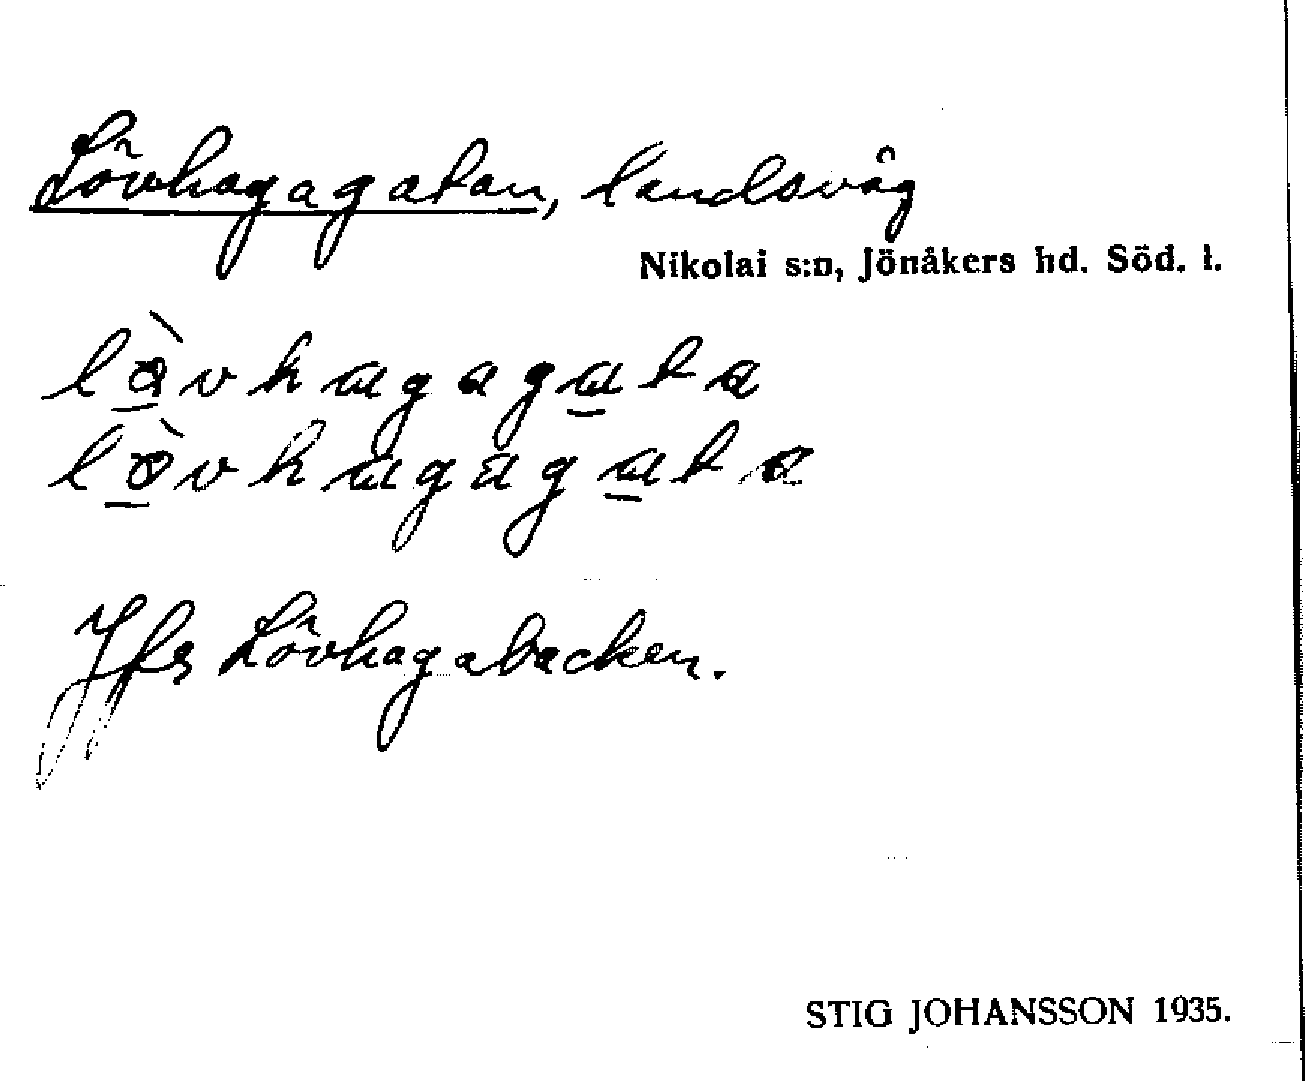 Lövhagagatan, landsväg
Nikolai s:n, Jönåkers hd. Söd. l.
lö̀vhagagata
lö̀vhagagata
Jfr Lövhagabacken.
STIG JOHANSSON 1935.